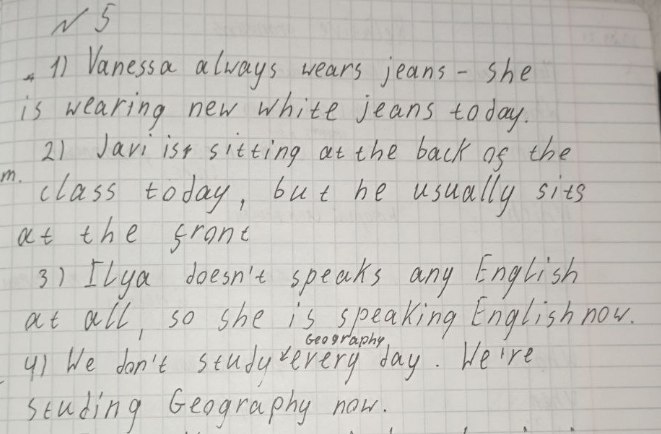 N 5
1) Vanessa always wears jeans - she
is wearing new white jeans today.
2) Javi is sitting at the back of the
m.
class today, but he usually sits
at the front
3) Ilya doesn't speaks any English
at all, so she is speaking English now.
Geography
4) We don't study every day. We're
studing Geography now.